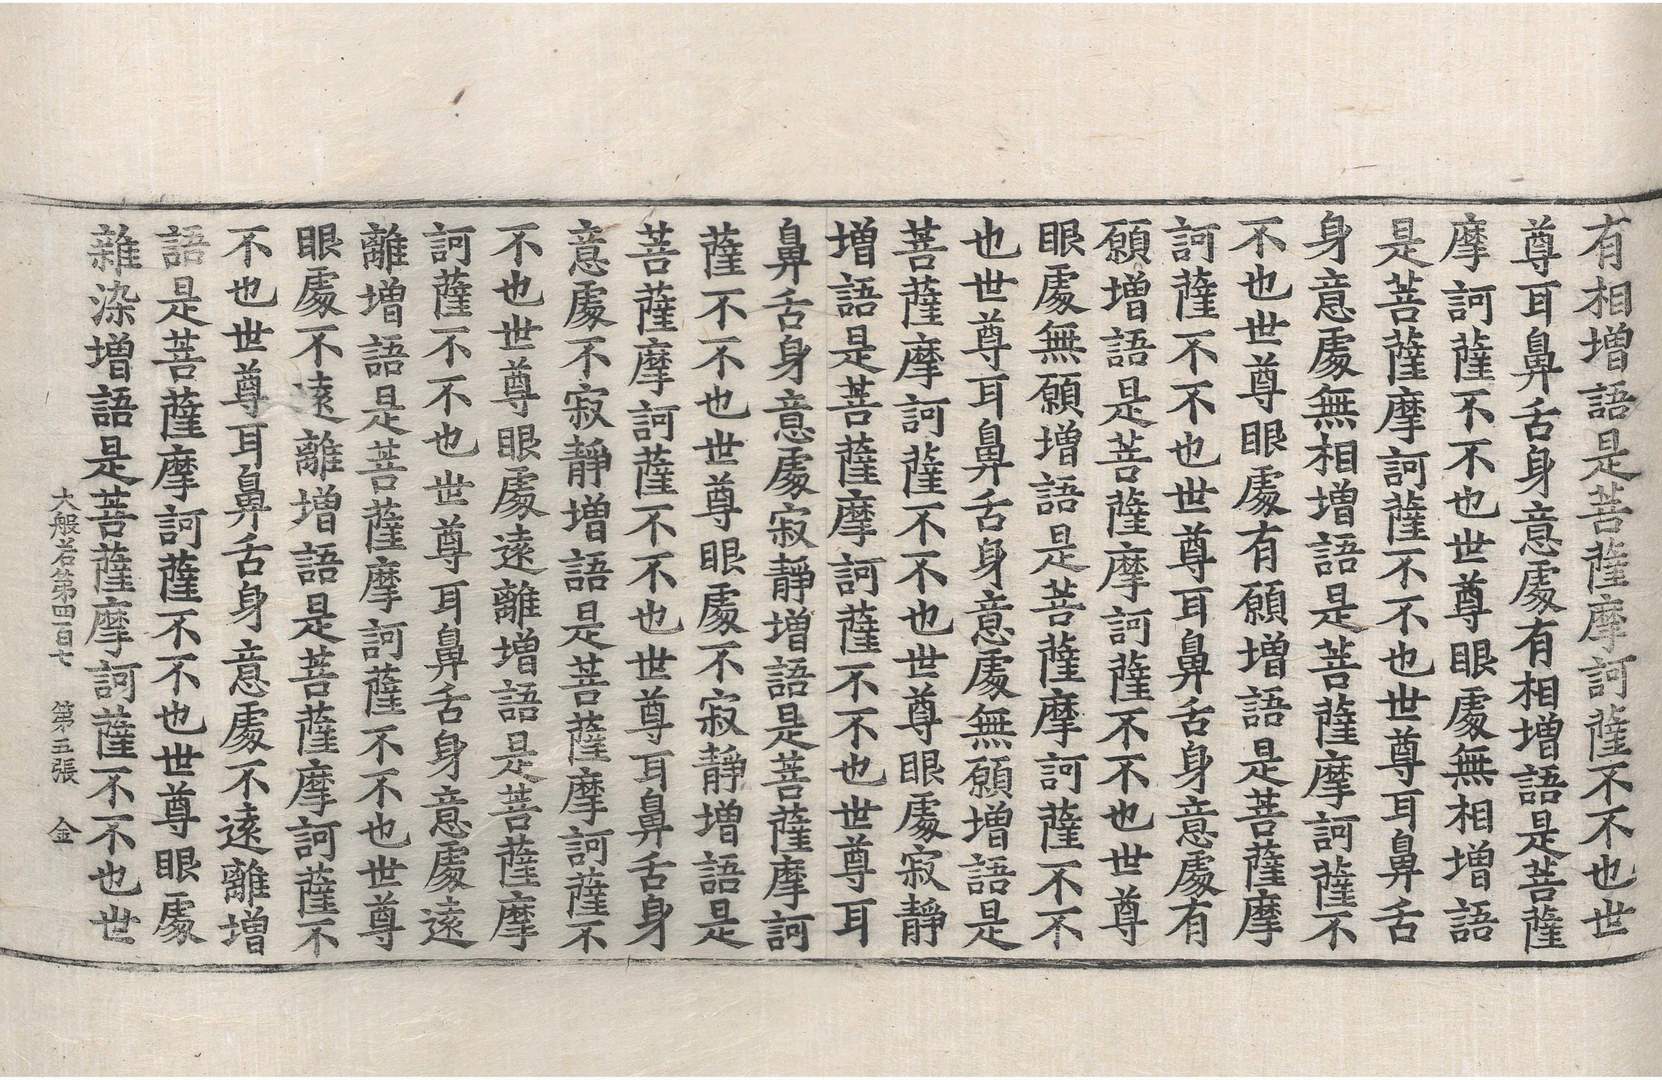 有相增語是菩薩摩訶薩不不也世
尊耳鼻舌身意處有相增語是菩薩
摩訶薩不不也世尊眼處無相增語
是菩薩摩訶薩不不也世尊耳鼻舌
身意處無相增語是菩薩摩訶薩不
不也世尊眼處有願增語是菩薩摩
訶薩不不也世尊耳鼻舌身意處有
願增語是菩薩摩訶薩不不也世尊
眼處無願增語是菩薩摩訶薩不不
也世尊耳鼻舌身意處無願增語是
菩薩摩訶薩不不也世尊眼處寂靜
增語是菩薩摩訶薩不不也世尊耳
鼻舌身意處寂靜增語是菩薩摩訶
薩不不也世尊眼處不寂靜增語是
菩薩摩訶薩不不也世尊耳鼻舌身
意處不寂靜增語是菩薩摩訶薩不
不也世尊眼處遠離增語是菩薩摩
訶薩不不也世尊耳鼻舌身意處遠
離增語是菩薩摩訶薩不不也世尊
眼處不遠離增語是菩薩摩訶薩不
不也世尊耳鼻舌身意處不遠離增
語是菩薩摩訶薩不不也世尊眼處
雜染增語是菩薩摩訶薩不不也世
大般若第四百七 第五張 金